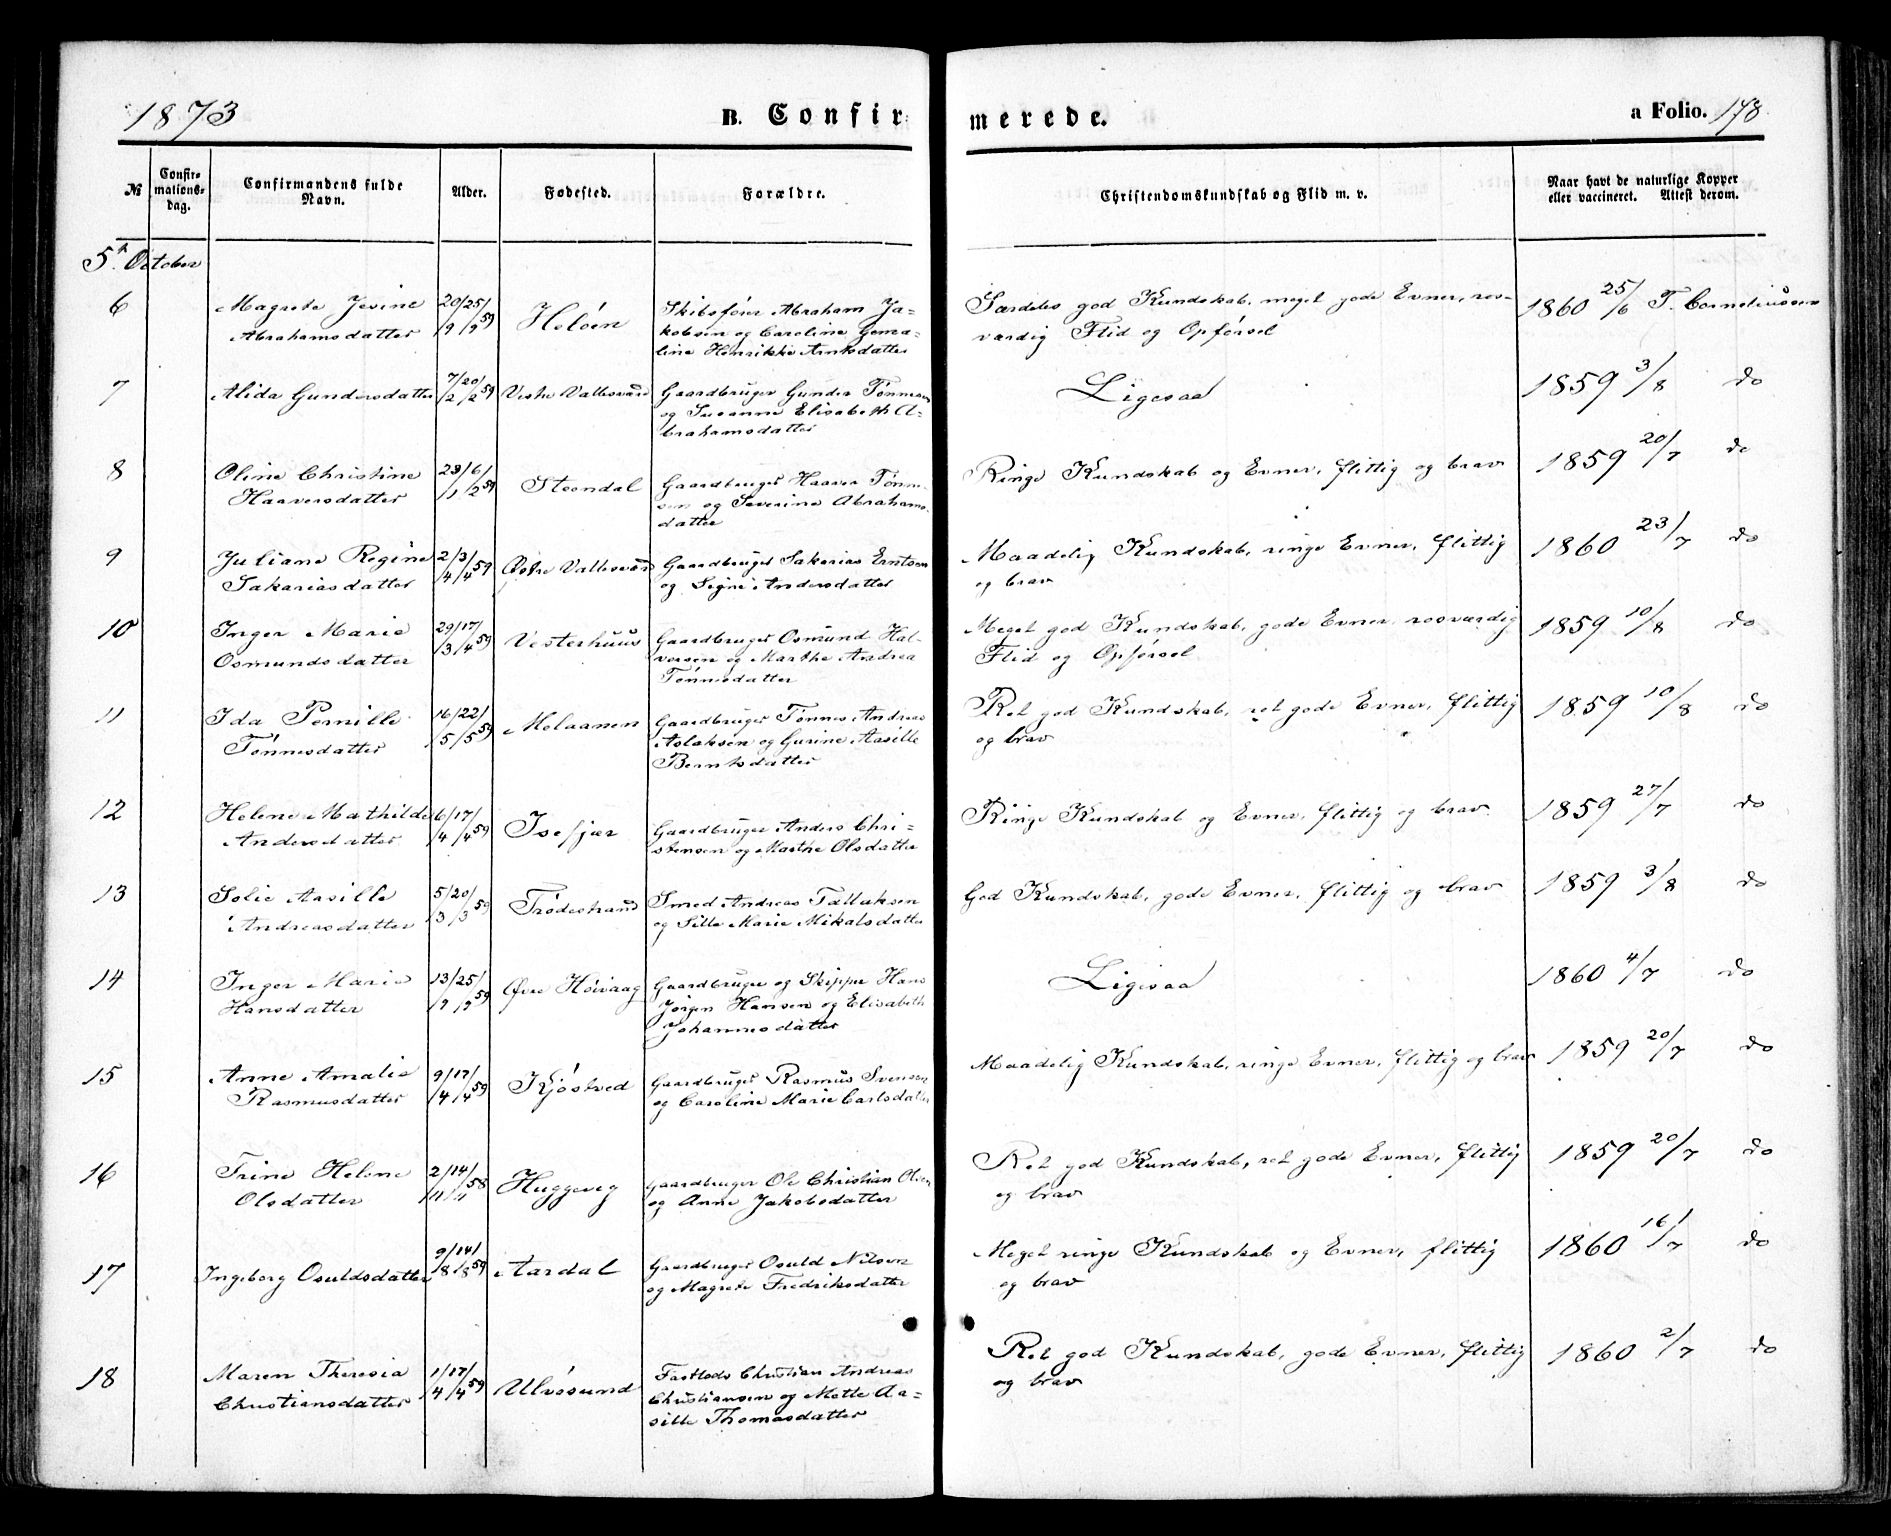 1873
B. Confirmerede.
a Folio. 178
№
Confirmationsdag.
Confirmandens fulde Navn.
Alder.
Fødested.
Forældre.
Christendomskundskab og Flid m. v.
Naar havt de naturlige Kopper eller vaccineret. Attest derom.
5te October
6 Magrete Jevine 20/9 25/9 59 Heløen Skibsfører Abraham Ja-
Abrahamsdatter kobsen og Caroline Gema-
line Henrikke Arntsdatter
Særdeles god Kundskab, meget gode Evner, ros- 1860 25/6 T. Corneliussen
værdig Flid og Opførsel
7 Alida Gundersdatter 7/2 20/2 59 Vestre Vallesværd Gaardbruger Gunder Tønnesen
og Susanne Elisabeth A-
brahamsdatter
Ligesaa 1859 3/8 do
8 Oline Christine 23/1 6/2 59 Steendal Gaardbruger Haaver Tønne-
Haaversdatter sen og Severine Abrahams-
datter
Ringe Kundskab og Evner, flittig og brav 1859 20/7 do
9 Juliane Regine 2/4 3/4 59 Østre Vallesværd Gaardbruger Sakarias Erntsen
Sakariasdatter og Signe Andersdatter
Maadelig Kundskab, ringe Evner, flittig 1860 23/7 do
og brav
10 Inger Marie 29/3 17/4 59 Vesterhuus Gaardbruger Osmund Hal-
Osmundsdatter vorsen og Marthe Andrea
Tønnesdatter
Meget god Kundskab, gode Evner, rosværdig 1859 10/8 do
Flid og Opførsel
11 Ida Pernille 16/5 22/5 59 Melaanen Gaardbruger Tønnes Andreas
Tønnesdatter Aslaksen og Gurine Aasille
Berntsdatter
Ret god Kundskab, ret gode Evner, flittig 1859 10/8 do
og brav
12 Helene Mathilde 6/4 17/4 59 Isefjær Gaardbruger Anders Chri-
Andersdatter stensen og Marthe Olsdatter
Ringe Kundskab og Evner, flittig og brav 1859 27/7 do
13 Solie Aasille 5/3 20/3 59 Trødestrand Smed Andreas Tallaksen
Andreasdatter og Sille Marie Mikalsdatter
God Kundskab, gode Evner, flittig og brav 1859 3/8 do
14 Inger Marie 13/9 25/9 59 Øvre Høivaag Gaardbruger og Skipper Hans
Hansdatter Jørgen Hansen og Elisabeth
Johannesdatter
Ligesaa 1860 4/7 do
15 Anne Amalie 9/4 17/4 59 Kjøstved Gaardbruger Rasmus Svensen
Rasmusdatter og Caroline Marie Carlsdatter
Maadelig Kundskab, ringe Evner, flittig og brav 1859 20/7 do
16 Trine Helene 2/11 14/11 58 Huggeveg Gaardbruger Ole Christian Olsen
Olsdatter og Anne Jakobsdatter
Ret god Kundskab, ret gode Evner, flittig 1859 20/7 do
og brav
17 Ingeborg Osuldsdatter 9/8 14/8 59 Aardal Gaardbruger Osuld Nilsen
og Magrete Fredriksdatter
Meget ringe Kundskab og Evner, flittig 1860 16/7 do
og brav
18 Maren Theresia 1/4 17/4 59 Ulvøsund Fastlods Christian Andreas
Christiansdatter Christiansen og Mette Aa-
sille Thomasdatter
Ret god Kundskab, gode Evner, flittig 1860 2/7 do
og brav